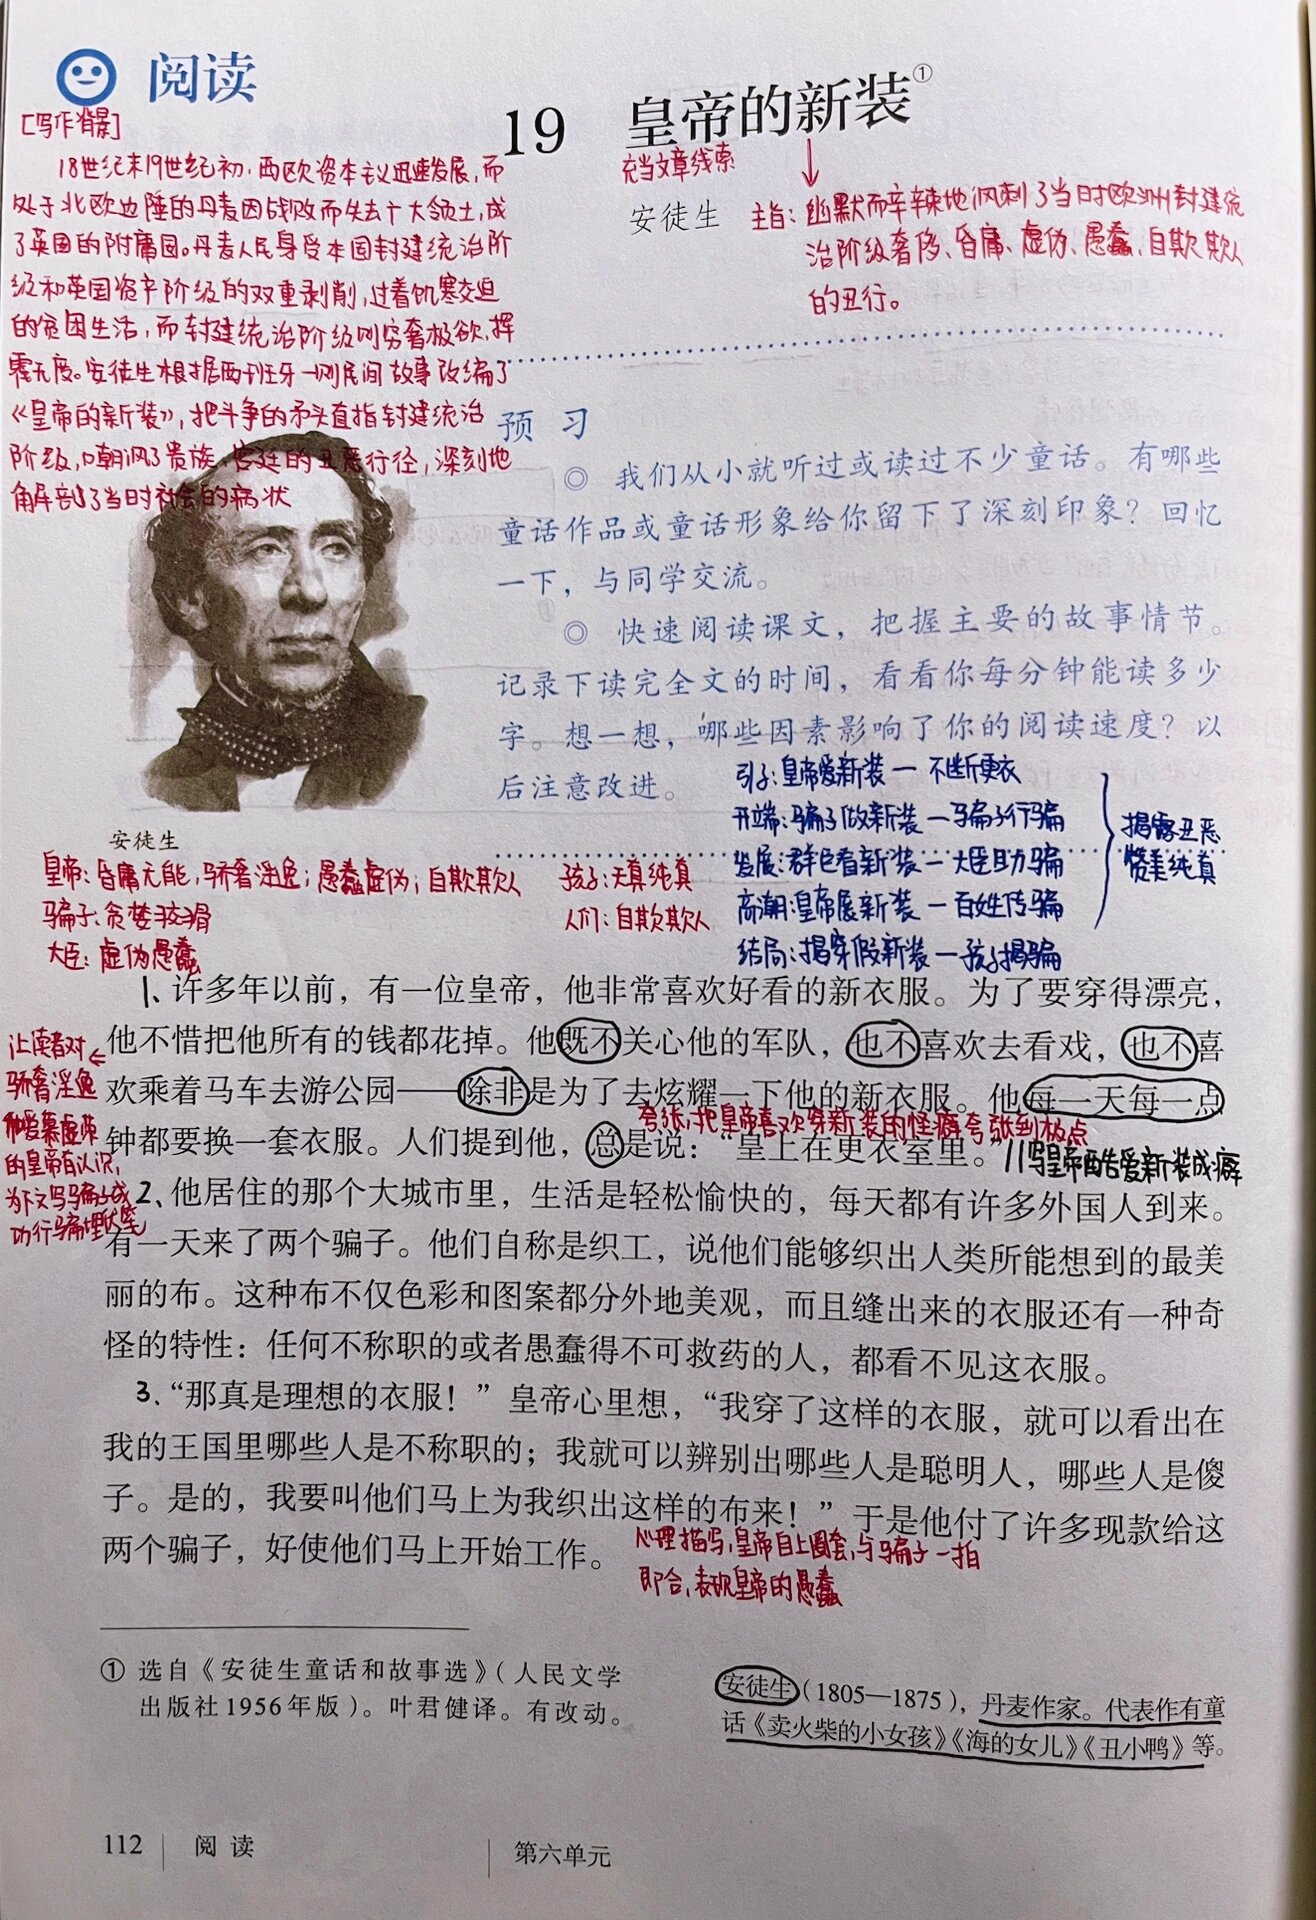 阅读
19 皇帝的新装①
[写作背景]
18世纪末19世纪初,西欧资本主义迅速发展,而
处于北欧边陲的丹麦因战败而失去了大领土,成
了英国的附庸国。丹麦人民身受本国封建统治阶
级和英国资产阶级的双重剥削,过着饥寒交迫
的贫困生活,而封建统治阶级则穷奢极欲,挥
霍无度。安徒生根据西班牙一则民间故事改编了
《皇帝的新装》,把斗争的矛头直指封建统治
阶级,嘲讽了贵族、宫廷的丑恶行径,深刻地
解剖了当时社会的病状
充当文章线索
安徒生
主旨:幽默而辛辣地讽刺了当时欧洲封建统
治阶级奢侈、昏庸、虚伪、愚蠢、自欺欺人
的丑行。
预习
◎ 我们从小就听过或读过不少童话。有哪些
童话作品或童话形象给你留下了深刻印象？回忆
一下，与同学交流。
◎ 快速阅读课文，把握主要的故事情节。
记录下读完全文的时间，看看你每分钟能读多少
字。想一想，哪些因素影响了你的阅读速度？以
后注意改进。
引子:皇帝爱新装—不断更衣
开端:骗子做新装—骗子行骗
发展:群臣看新装—大臣助骗
高潮:皇帝展新装—百姓传骗
结局:揭穿假新装—孩子揭骗
揭露丑恶
赞美纯真
安徒生
皇帝:昏庸无能;骄奢淫逸;愚蠢虚伪;自欺欺人
骗子:贪婪狡猾
大臣:虚伪愚蠢
孩子:天真纯真
人们:自欺欺人
1、许多年以前，有一位皇帝，他非常喜欢好看的新衣服。为了要穿得漂亮，
他不惜把他所有的钱都花掉。他既不关心他的军队，也不喜欢去看戏，也不喜
欢乘着马车去游公园——除非是为了去炫耀一下他的新衣服。他每一天每一点
夸张,把皇帝喜欢穿新装的怪癖夸张到极点
钟都要换一套衣服。人们提到他，总是说：“皇上在更衣室里。”
//写皇帝酷爱新装成癖
让读者对
骄奢淫逸
和爱慕虚荣
的皇帝有认识,
为下文写骗子成
功行骗埋伏笔
2、他居住的那个大城市里，生活是轻松愉快的，每天都有许多外国人到来。
有一天来了两个骗子。他们自称是织工，说他们能够织出人类所能想到的最美
丽的布。这种布不仅色彩和图案都分外地美观，而且缝出来的衣服还有一种奇
怪的特性：任何不称职的或者愚蠢得不可救药的人，都看不见这衣服。
3、“那真是理想的衣服！”皇帝心里想，“我穿了这样的衣服，就可以看出在
我的王国里哪些人是不称职的；我就可以辨别出哪些人是聪明人，哪些人是傻
子。是的，我要叫他们马上为我织出这样的布来！”于是他付了许多现款给这
两个骗子，好使他们马上开始工作。
心理描写,皇帝自上圈套,与骗子一拍
即合,表现皇帝的愚蠢
① 选自《安徒生童话和故事选》（人民文学
出版社1956年版）。叶君健译。有改动。
安徒生（1805—1875），丹麦作家。代表作有童
话《卖火柴的小女孩》《海的女儿》《丑小鸭》等。
112 阅读 第六单元